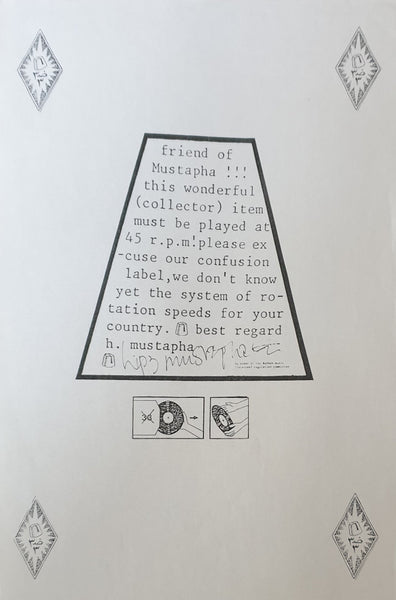 friend of
Mustapha !!!
this wonderful
(collector) item
must be played at
45 r.p.m!please ex
-cuse our confusion
label,we don't know
yet the system of ro-
tation speeds for your
country. best regard
h. mustapha